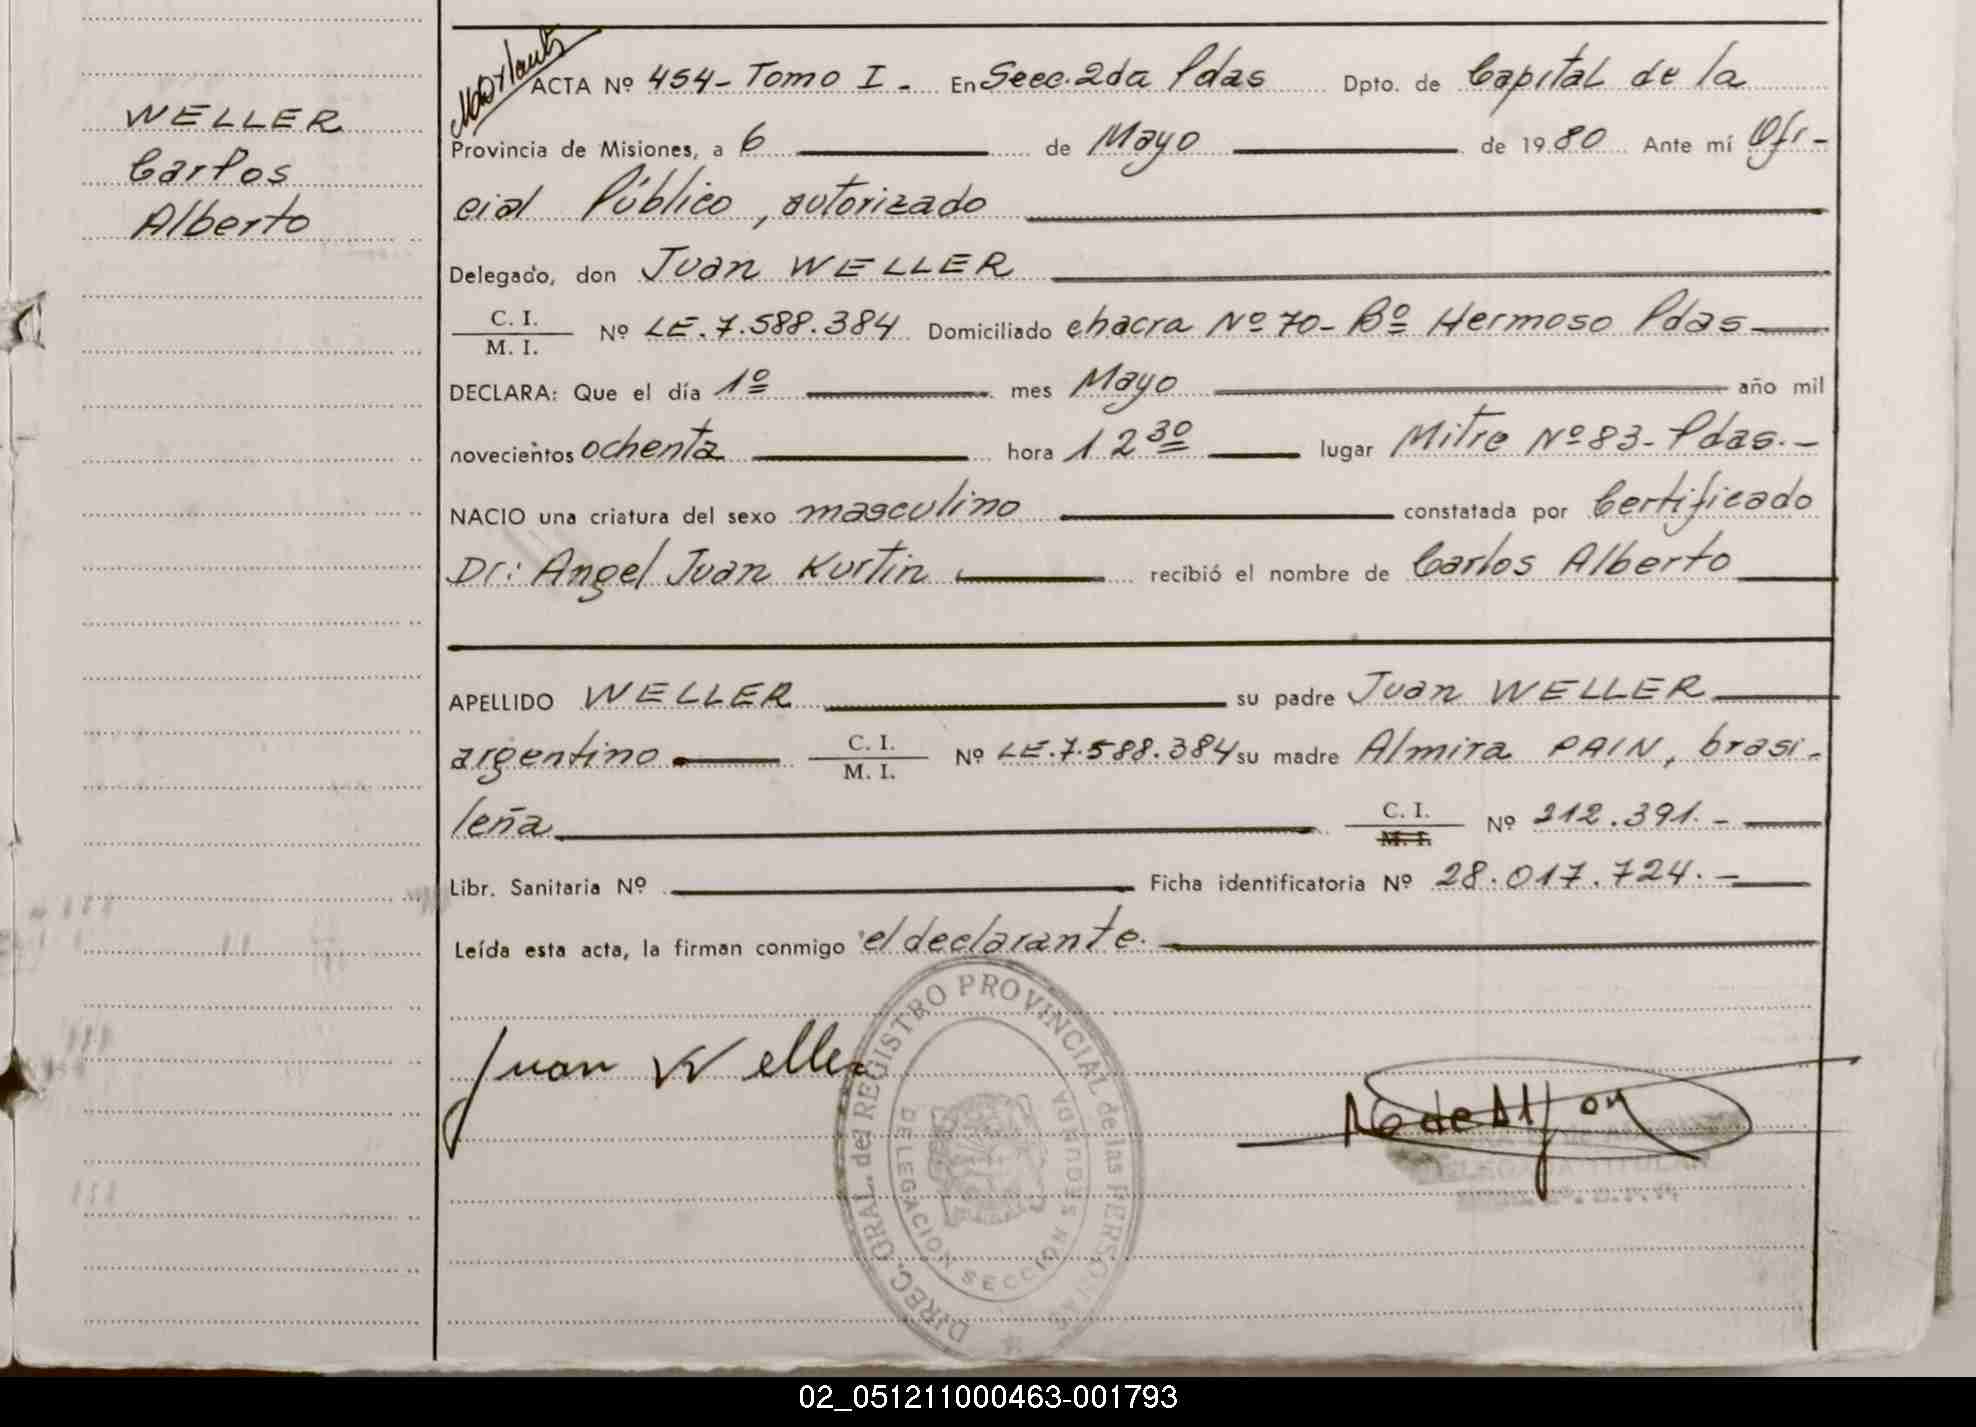 WELLER
Carlos
Alberto
ACTA Nº 454- Tomo I. En Secc. 2da Pdas Dpto. de Capital de la
Provincia de Misiones, a 6 de Mayo de 1980 Ante mí Ofi-
cial Público, autorizado
Delegado, don Juan WELLER
C. I.
M. I. Nº LE. 7.588.384 Domiciliado chacra Nº 70- Bº Hermoso Pdas
DECLARA: Que el día 1º mes Mayo año mil
novecientos ochenta hora 12 30 lugar Mitre Nº 83- Pdas.-
NACIO una criatura del sexo masculino constatada por Certificado
Dr: Angel Juan Kurtin recibió el nombre de Carlos Alberto
APELLIDO WELLER su padre Juan WELLER
argentino C. I. M. I. Nº LE. 7.588.384 su madre Almira PAIN, brasi-
leña C. I. M. I. Nº 212.391.-
Libr. Sanitaria Nº Ficha identificatoria Nº 28.017.724.-
Leída esta acta, la firman conmigo el declarante.
Juan Weller
DIREC. GRAL. del REGISTRO PROVINCIAL de las PERSONAS
DELEGACION SECCION SEGUNDA
DELEGADA TITULAR
02_051211000463-001793